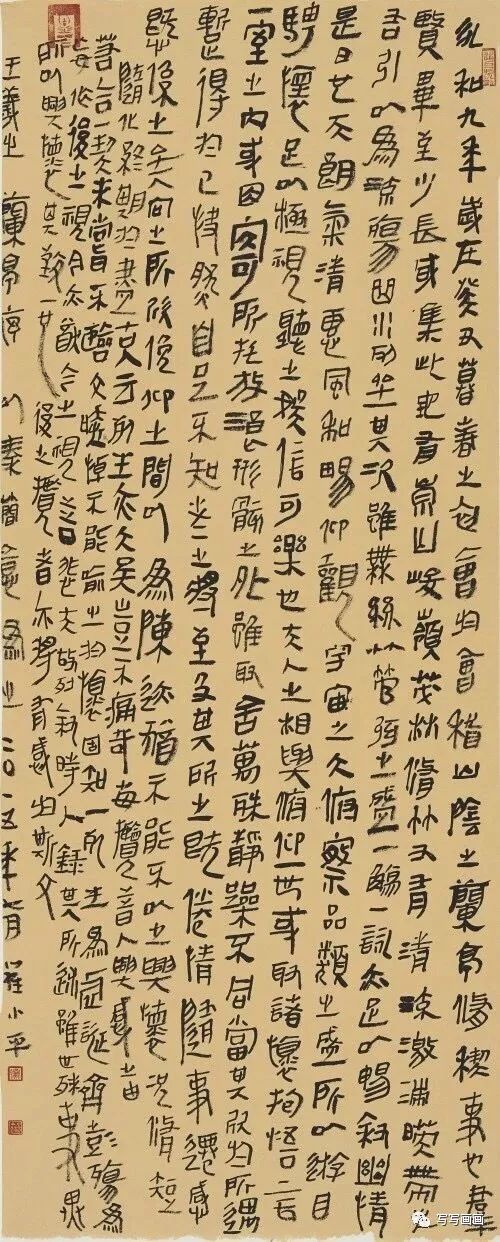 永和九年歲在癸丑暮春之初會于會稽山陰之蘭亭脩禊事也羣
賢畢至少長咸集此地有崇山峻嶺茂林脩竹又有清流激湍暎帶左
右引以為流觴曲水列坐其次雖無絲竹管弦之盛一觴一詠亦足以暢敘幽情
是日也天朗氣清惠風和暢仰觀宇宙之大俯察品類之盛所以遊目
騁懷足以極視聽之娛信可樂也夫人之相與俯仰一世或取諸懷抱悟言
一室之內或因寄所託放浪形骸之外雖取舍萬殊靜躁不同當其欣於所遇
暫得於己快然自足不知老之將至及其所之既倦情隨事遷感
慨係之矣向之所欣俛仰之間以為陳迹猶不能不以之興懷況脩短
隨化終期於盡古人云死生亦大矣豈不痛哉每攬昔人興感之由
若合一契未嘗不臨文嗟悼不能喻之於懷固知一死生為虛誕齊彭殤為
妄作後之視今亦猶今之視昔悲夫故列敘時人錄其所述雖世殊事異
所以興懷其致一也後之攬者亦將有感於斯文
王羲之蘭亭序以秦簡意為之二〇一五年月羅小平
写写画画